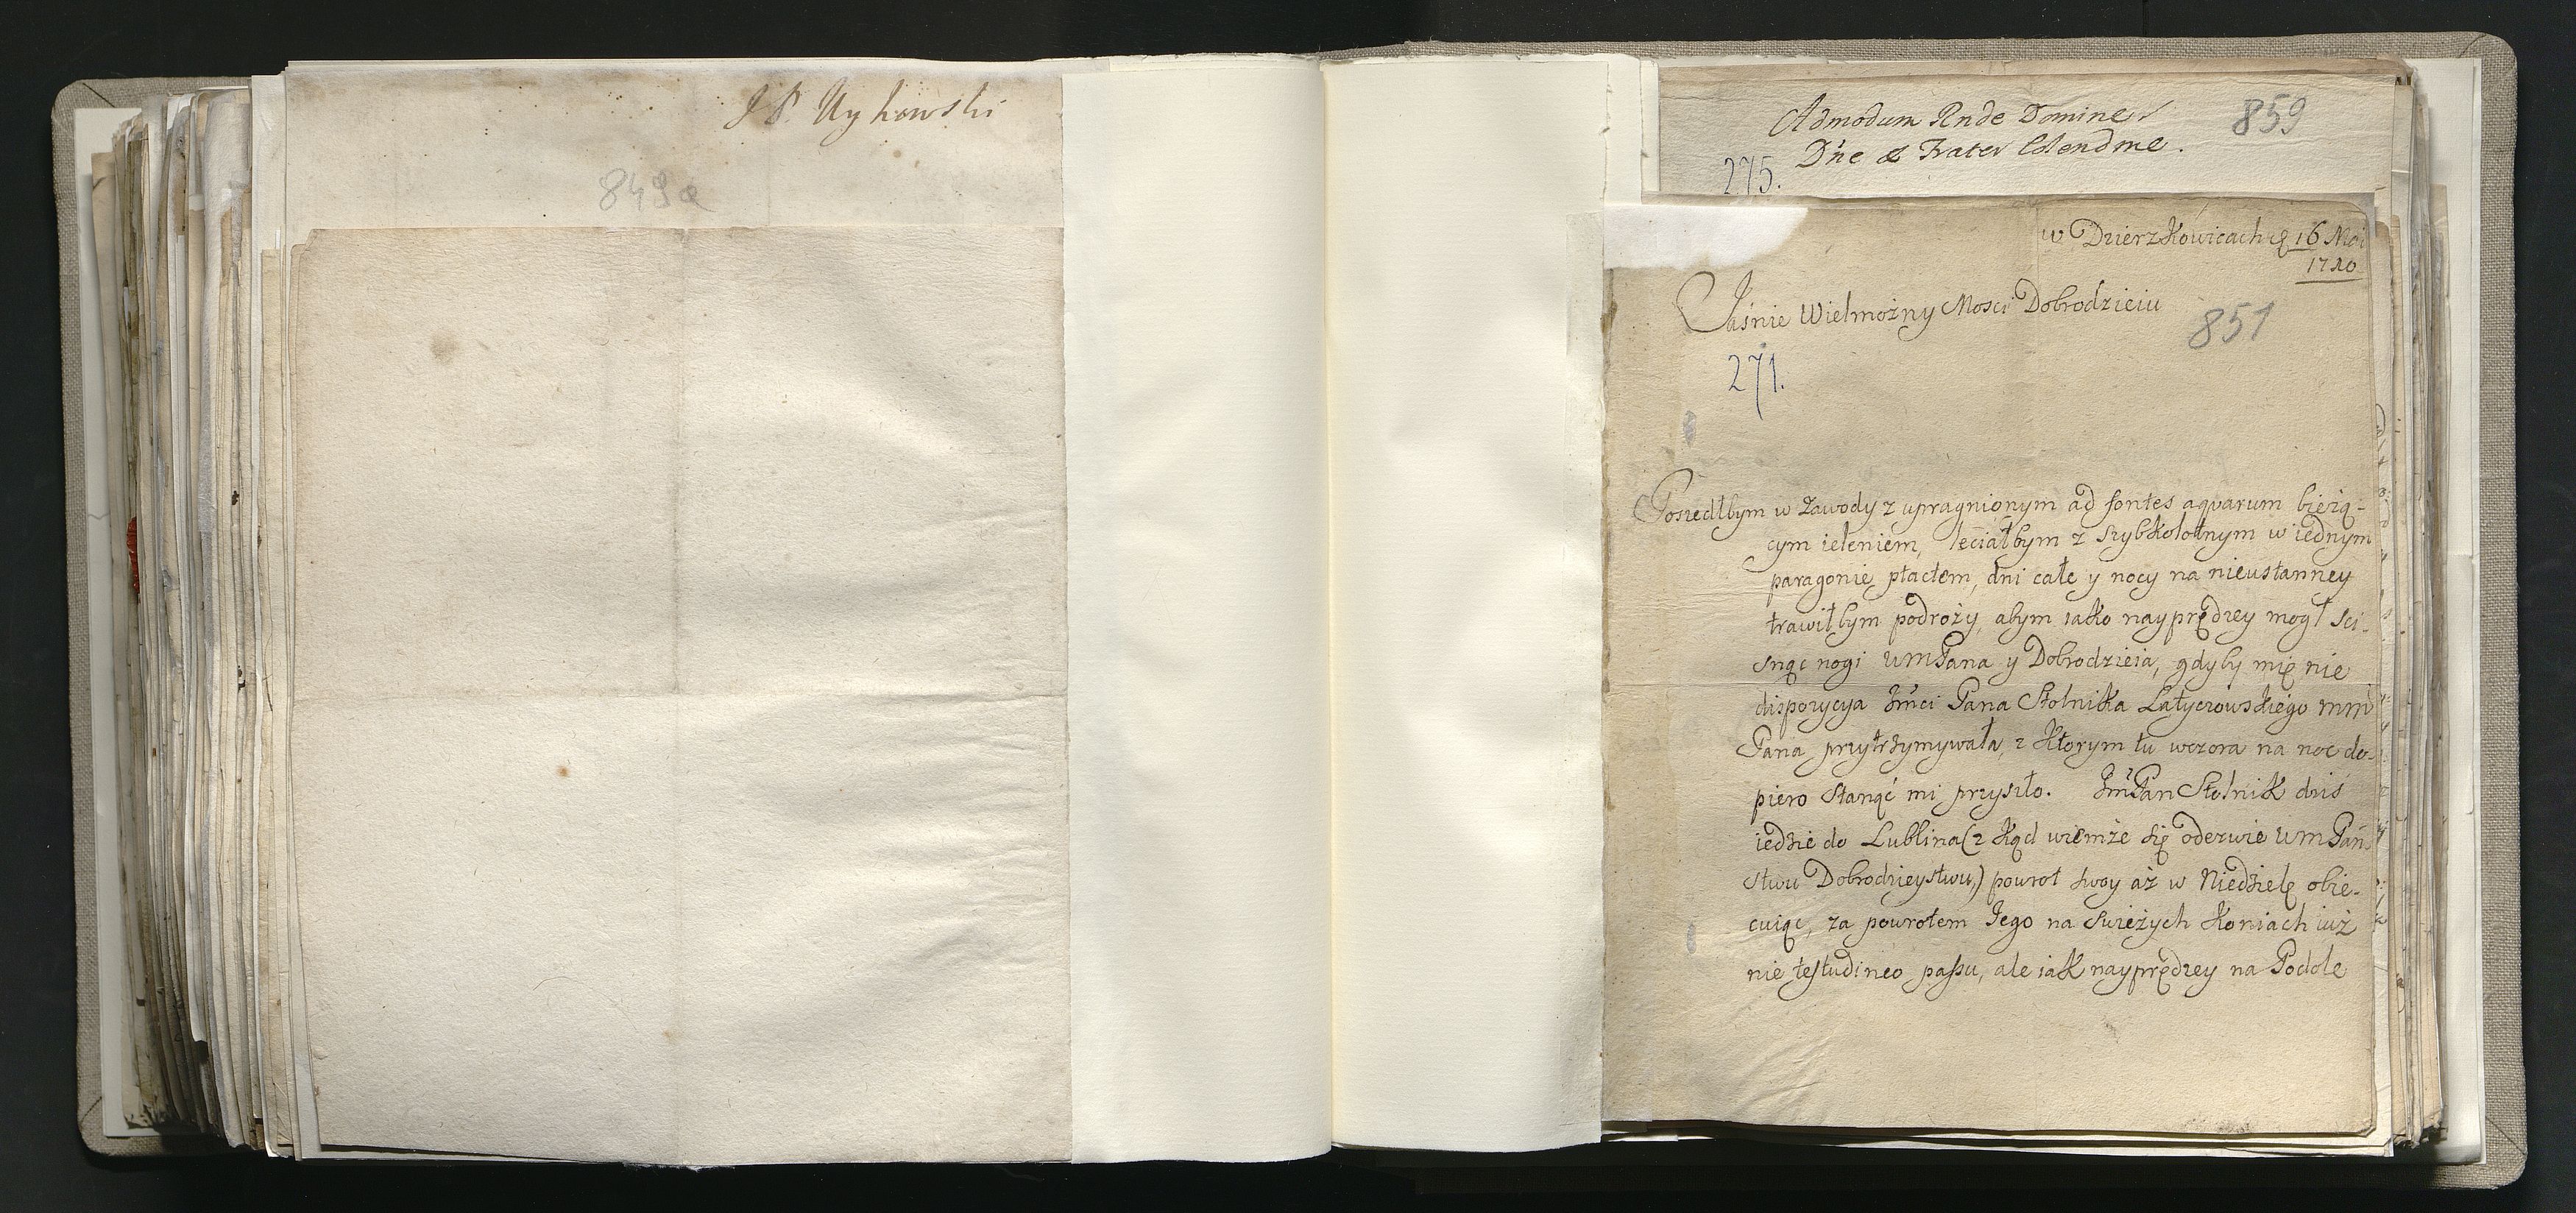 J P. Uykowski
849a
Admodum Rnde Domine
859
Dne & Frater Colendme.
275.
w Dzierzkowicach d 16 Mai
1720
Jaśnie Wielmożny Mosci Dobrodzieiu
851
271.
Poszedłbym w zawody z upragnionym ad fontes aquarum bieżą-
cym ieleniem, leciałbym z szybkolotnym w iednym
paragonie ptactem, dni całe y nocy na nieustanney
trawiłbym podroży, abym iako nayprędzey mogł sci-
snąc nogi WmPana y Dobrodzieia, gdyby mię nie
dispozycya Jmci Pana Stolnika Latyczowskiego mm
Pana przytrzymywała, z ktorym tu wczora na noc do-
piero stanąć mi przyszło. JmPan Stolnik dziś
iedzie do Lublina (z kąd wiem że się odezwie WmPań-
stwu Dobrodzieystwu,) powrot swoy aż w Niedzielę obie-
cuiąc, za powrotem Jego na swieżych koniach iuż
nie testudineo passu, ale iak nayprędzey na Podole